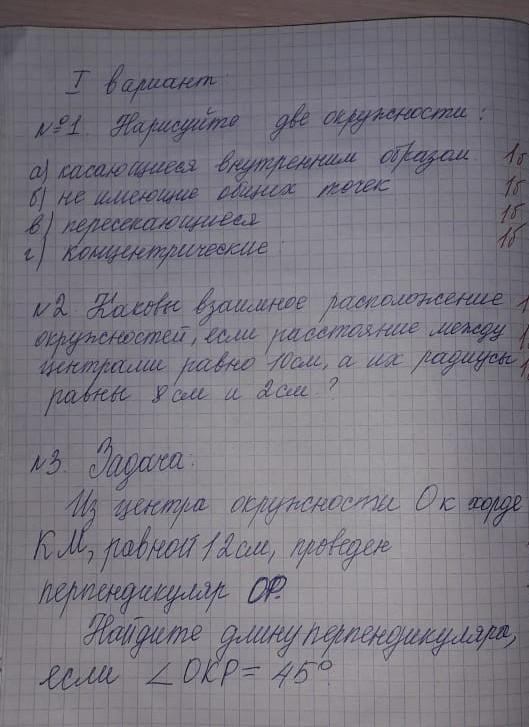 I вариант.
№1. Нарисуйте две окружности:
а) касающиеся внутренним образом 1б
б) не имеющие общих точек 1б
в) пересекающиеся 1б
г) концентрические 1б
№2. Каковы взаимное расположение
окружностей, если расстояние между
центрами равно 10см, а их радиусы
равны 8 см и 2см?
№3. Задача:
Из центра окружности О к хорде
КМ, равной 12см, проведен
перпендикуляр ОР.
Найдите длину перпендикуляра,
если ∠ОКР = 45°